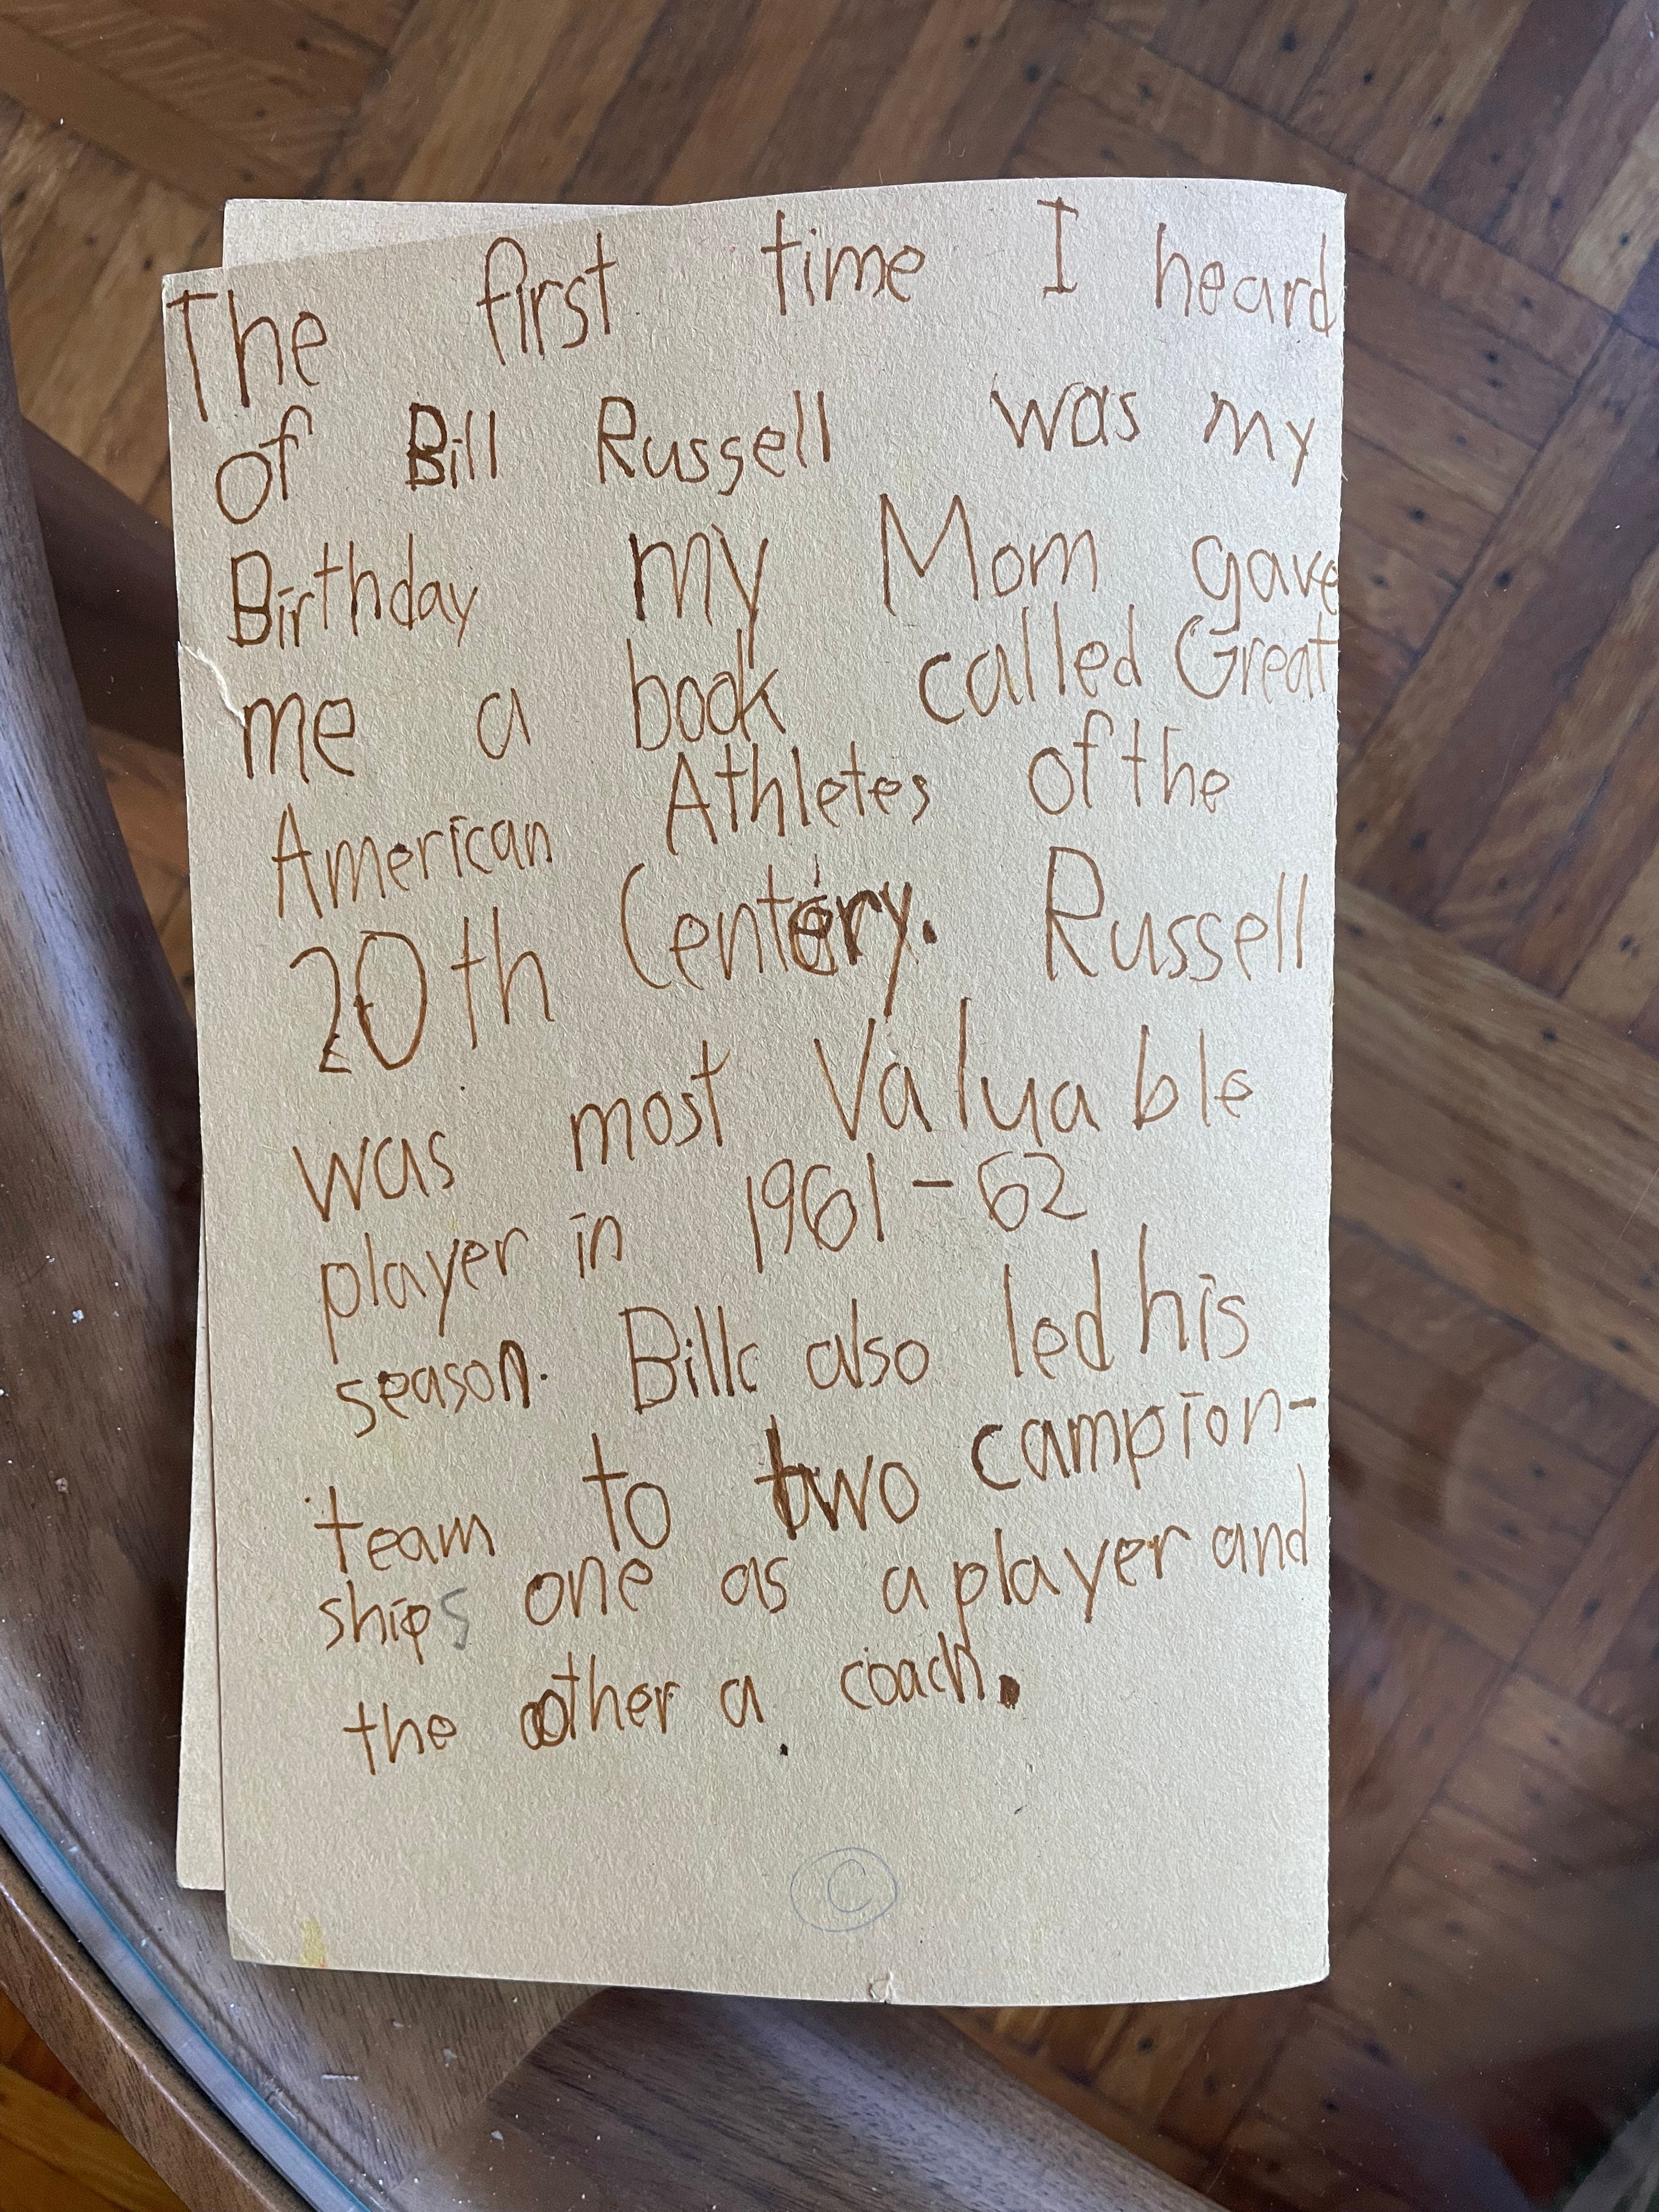 The first time I heard
of Bill Russell was my
Birthday my Mom gave
me a book called Great
American Athletes of the
20th Centery. Russell
was most Valuable
player in 1961-62
season. Bill also led his
team to two campion-
ships one as a player and
the other a coach.
C